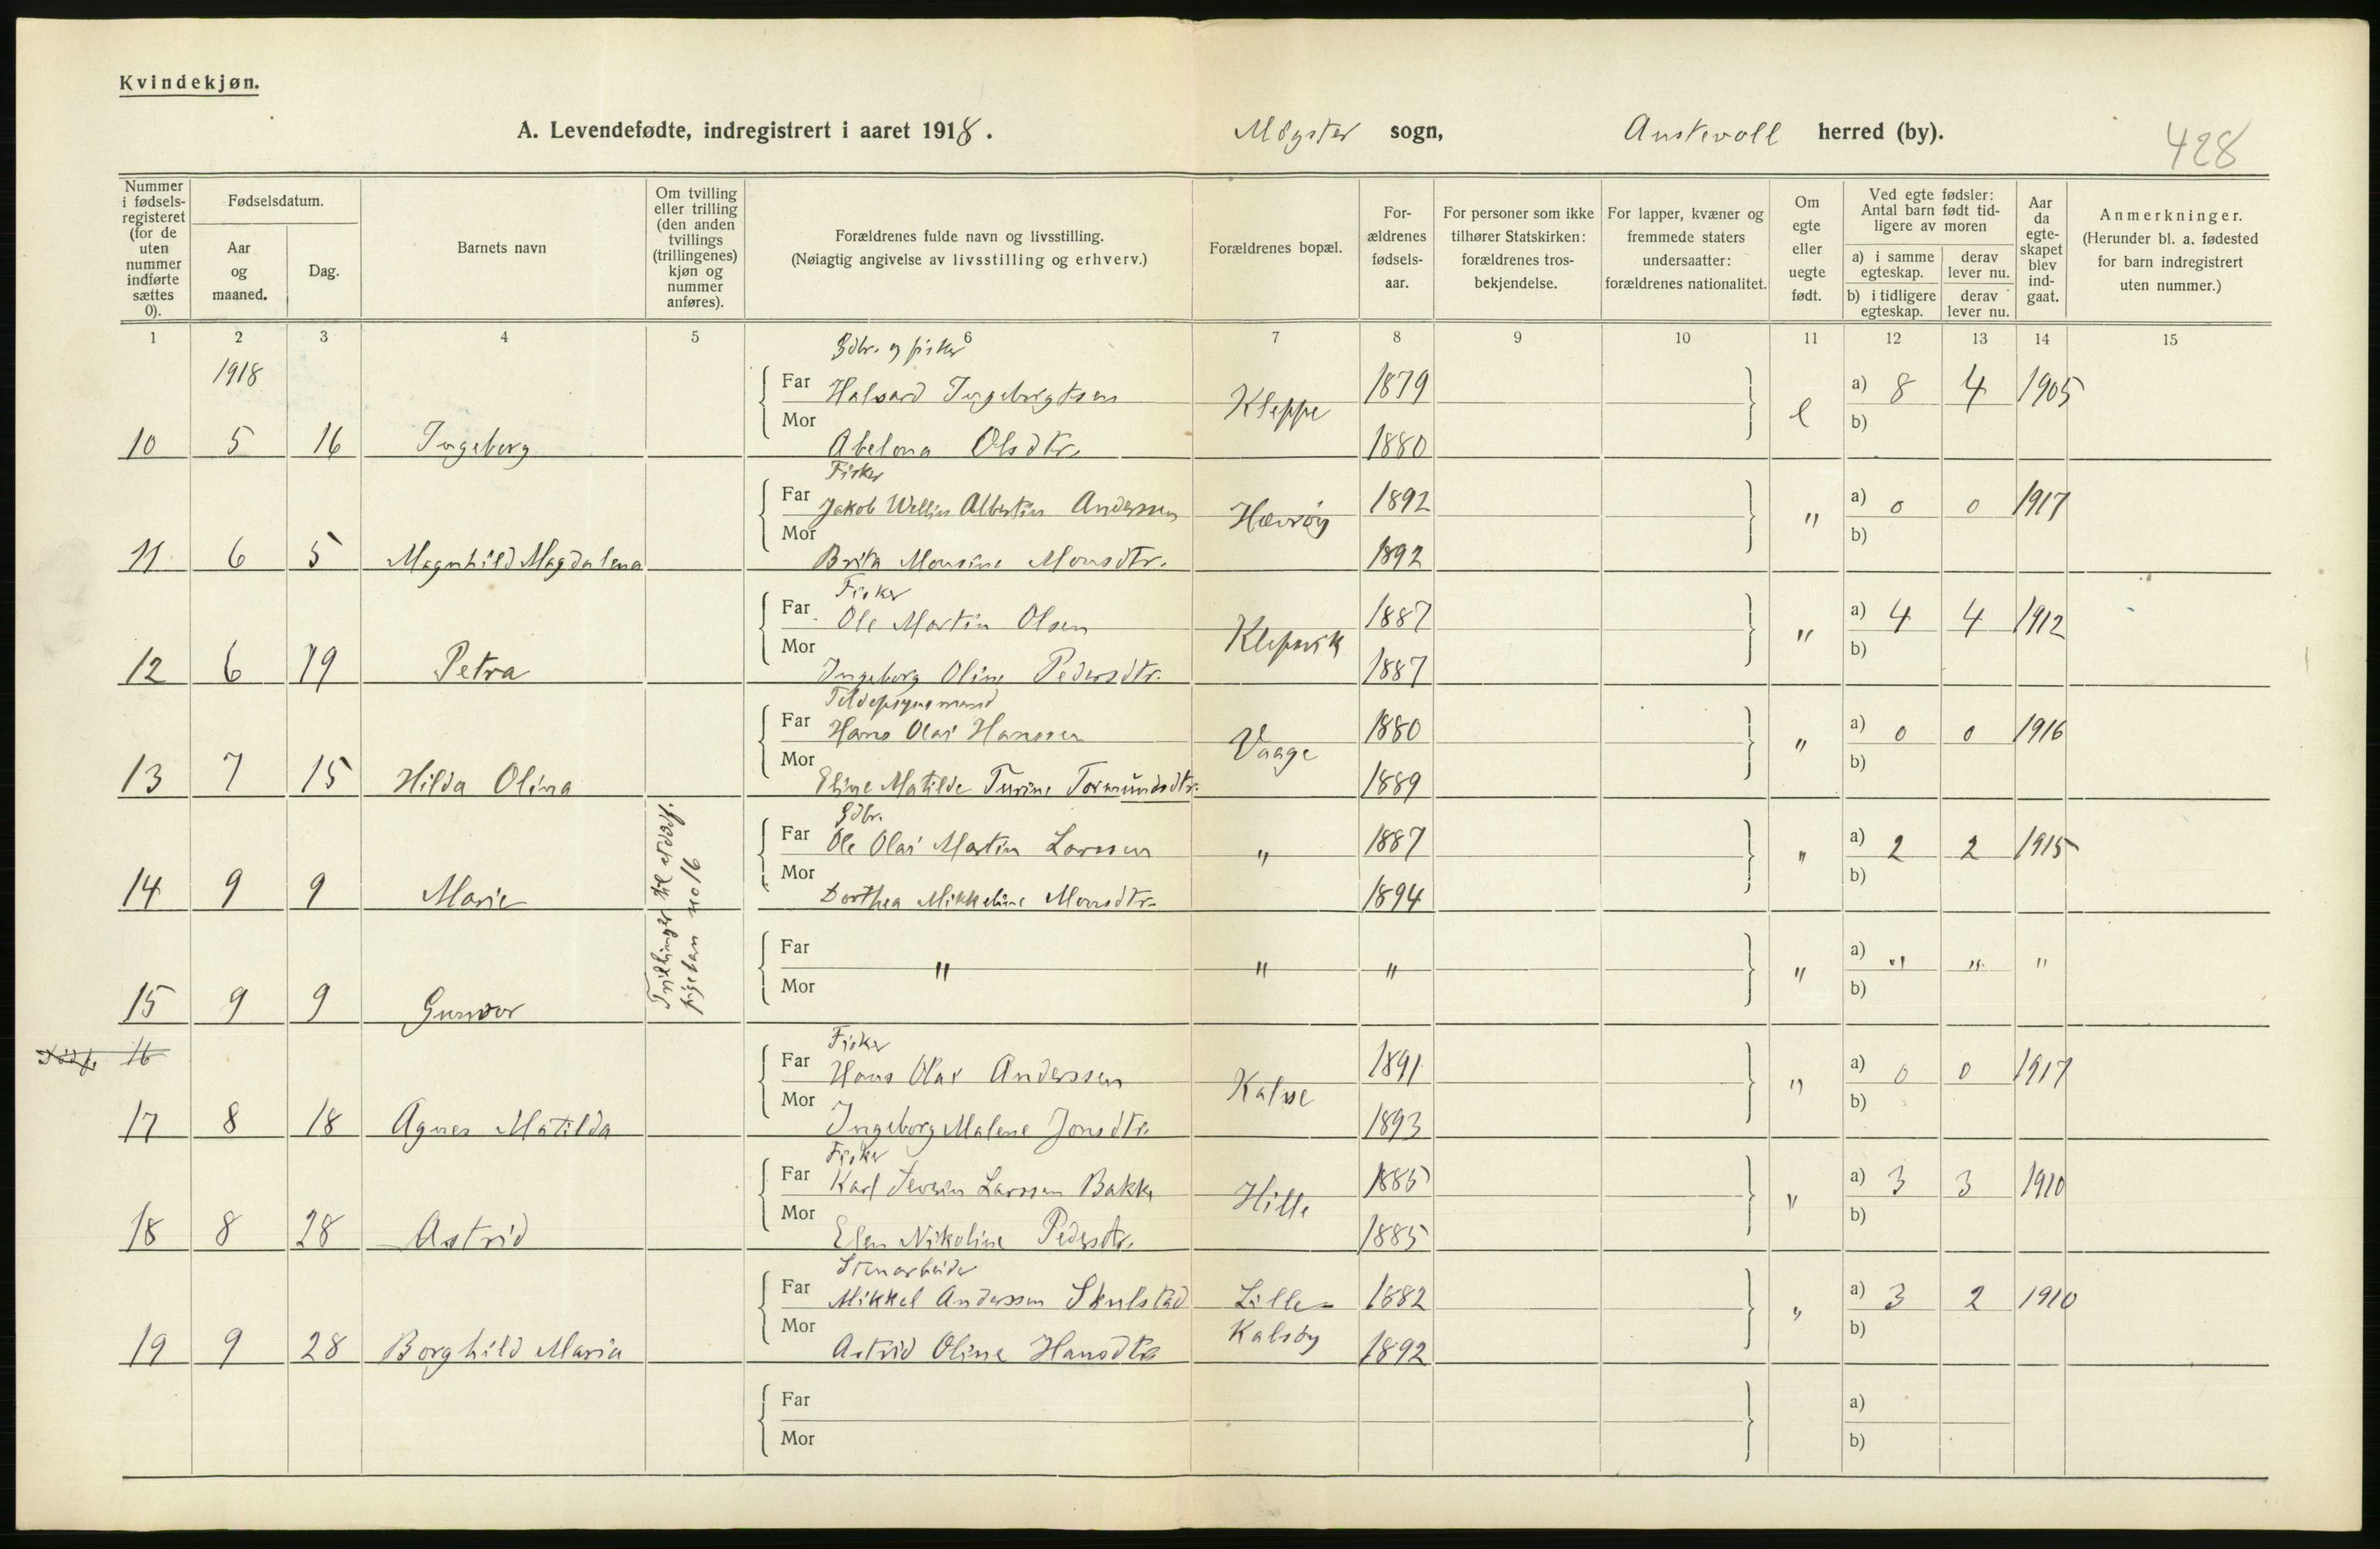 Kvindekjøn.
A. Levendefødte, indregistrert i aaret 1918. Møgster sogn, Austevoll herred (by).
428
Nummer i fødselsregisteret (for de uten nummer indførte sættes 0).
Fødselsdatum.
Aar og maaned.
Dag.
Barnets navn
Om tvilling eller trilling (den anden tvillings (trillingenes) kjøn og nummer anføres).
Forældrenes fulde navn og livsstilling.
(Nøiagtig angivelse av livsstilling og erhverv.)
Forældrenes bopæl.
Forældrenes fødselsaar.
For personer som ikke tilhører Statskirken: forældrenes trosbekjendelse.
For lapper, kvæner og fremmede staters undersaatter: forældrenes nationalitet.
Om egte eller uegte født.
Ved egte fødsler: Antal barn født tidligere av moren
a) i samme egteskap.
derav lever nu.
b) i tidligere egteskap.
derav lever nu.
Aar da egteskapet blev indgaat.
Anmerkninger.
(Herunder bl. a. fødested for barn indregistrert uten nummer.)
1 2 3 4 5 6 7 8 9 10 11 12 13 14 15
1918
Gdbr. og fisker
Far Halvard Ingebrigtsen Kleppe 1879 e a) 8 4 1905
10 5 16 Ingeborg Mor Abelona Olsdtr. 1880 b)
Fisker
Far Jakob Wellin Albertin Anderssen Havrøy 1892 " a) 0 0 1917
11 6 5 Magnhild Magdalena Mor Brita Monsine Monsdtr. 1892 b)
Fisker
Far Ole Martin Olsen Klepsvik 1887 " a) 4 4 1912
12 6 19 Petra Mor Ingeborg Oline Pedersdtr. 1887 b)
Far Hans Olai Hanssen Vaage 1880 " a) 0 0 1916
13 7 15 Hilda Olina Mor Eline Matilde Turine Tormundsdtr. 1889 b)
Gdbr.
Far Ole Olai Martin Larssen " 1887 " a) 2 2 1915
14 9 9 Marie Mor Dorthea Mikkeline Monsdtr. 1894 b)
Trillinger til dødf. pigebarn no 16
Far Mor " " " " a) " " " b)
15 9 9 Gunvor
Dødf. 16
Fisker
Far Hans Olai Anderssen Kalve 1891 " a) 0 0 1917
17 8 18 Agnes Matilda Mor Ingeborg Malene Jonsdtr. 1893 b)
Fisker
Far Karl Severin Larssen Bakke Hille 1885 " a) 3 3 1910
18 8 28 Astrid Mor Elen Nikoline Pedersdtr. 1885 b)
Stenarbeider
Far Mikkel Anderssen Skulstad Lille- 1882 " a) 3 2 1910
19 9 28 Borghild Maria Mor Astrid Oline Hansdtr Kalsøy 1892 b)
Far a)
Mor b)